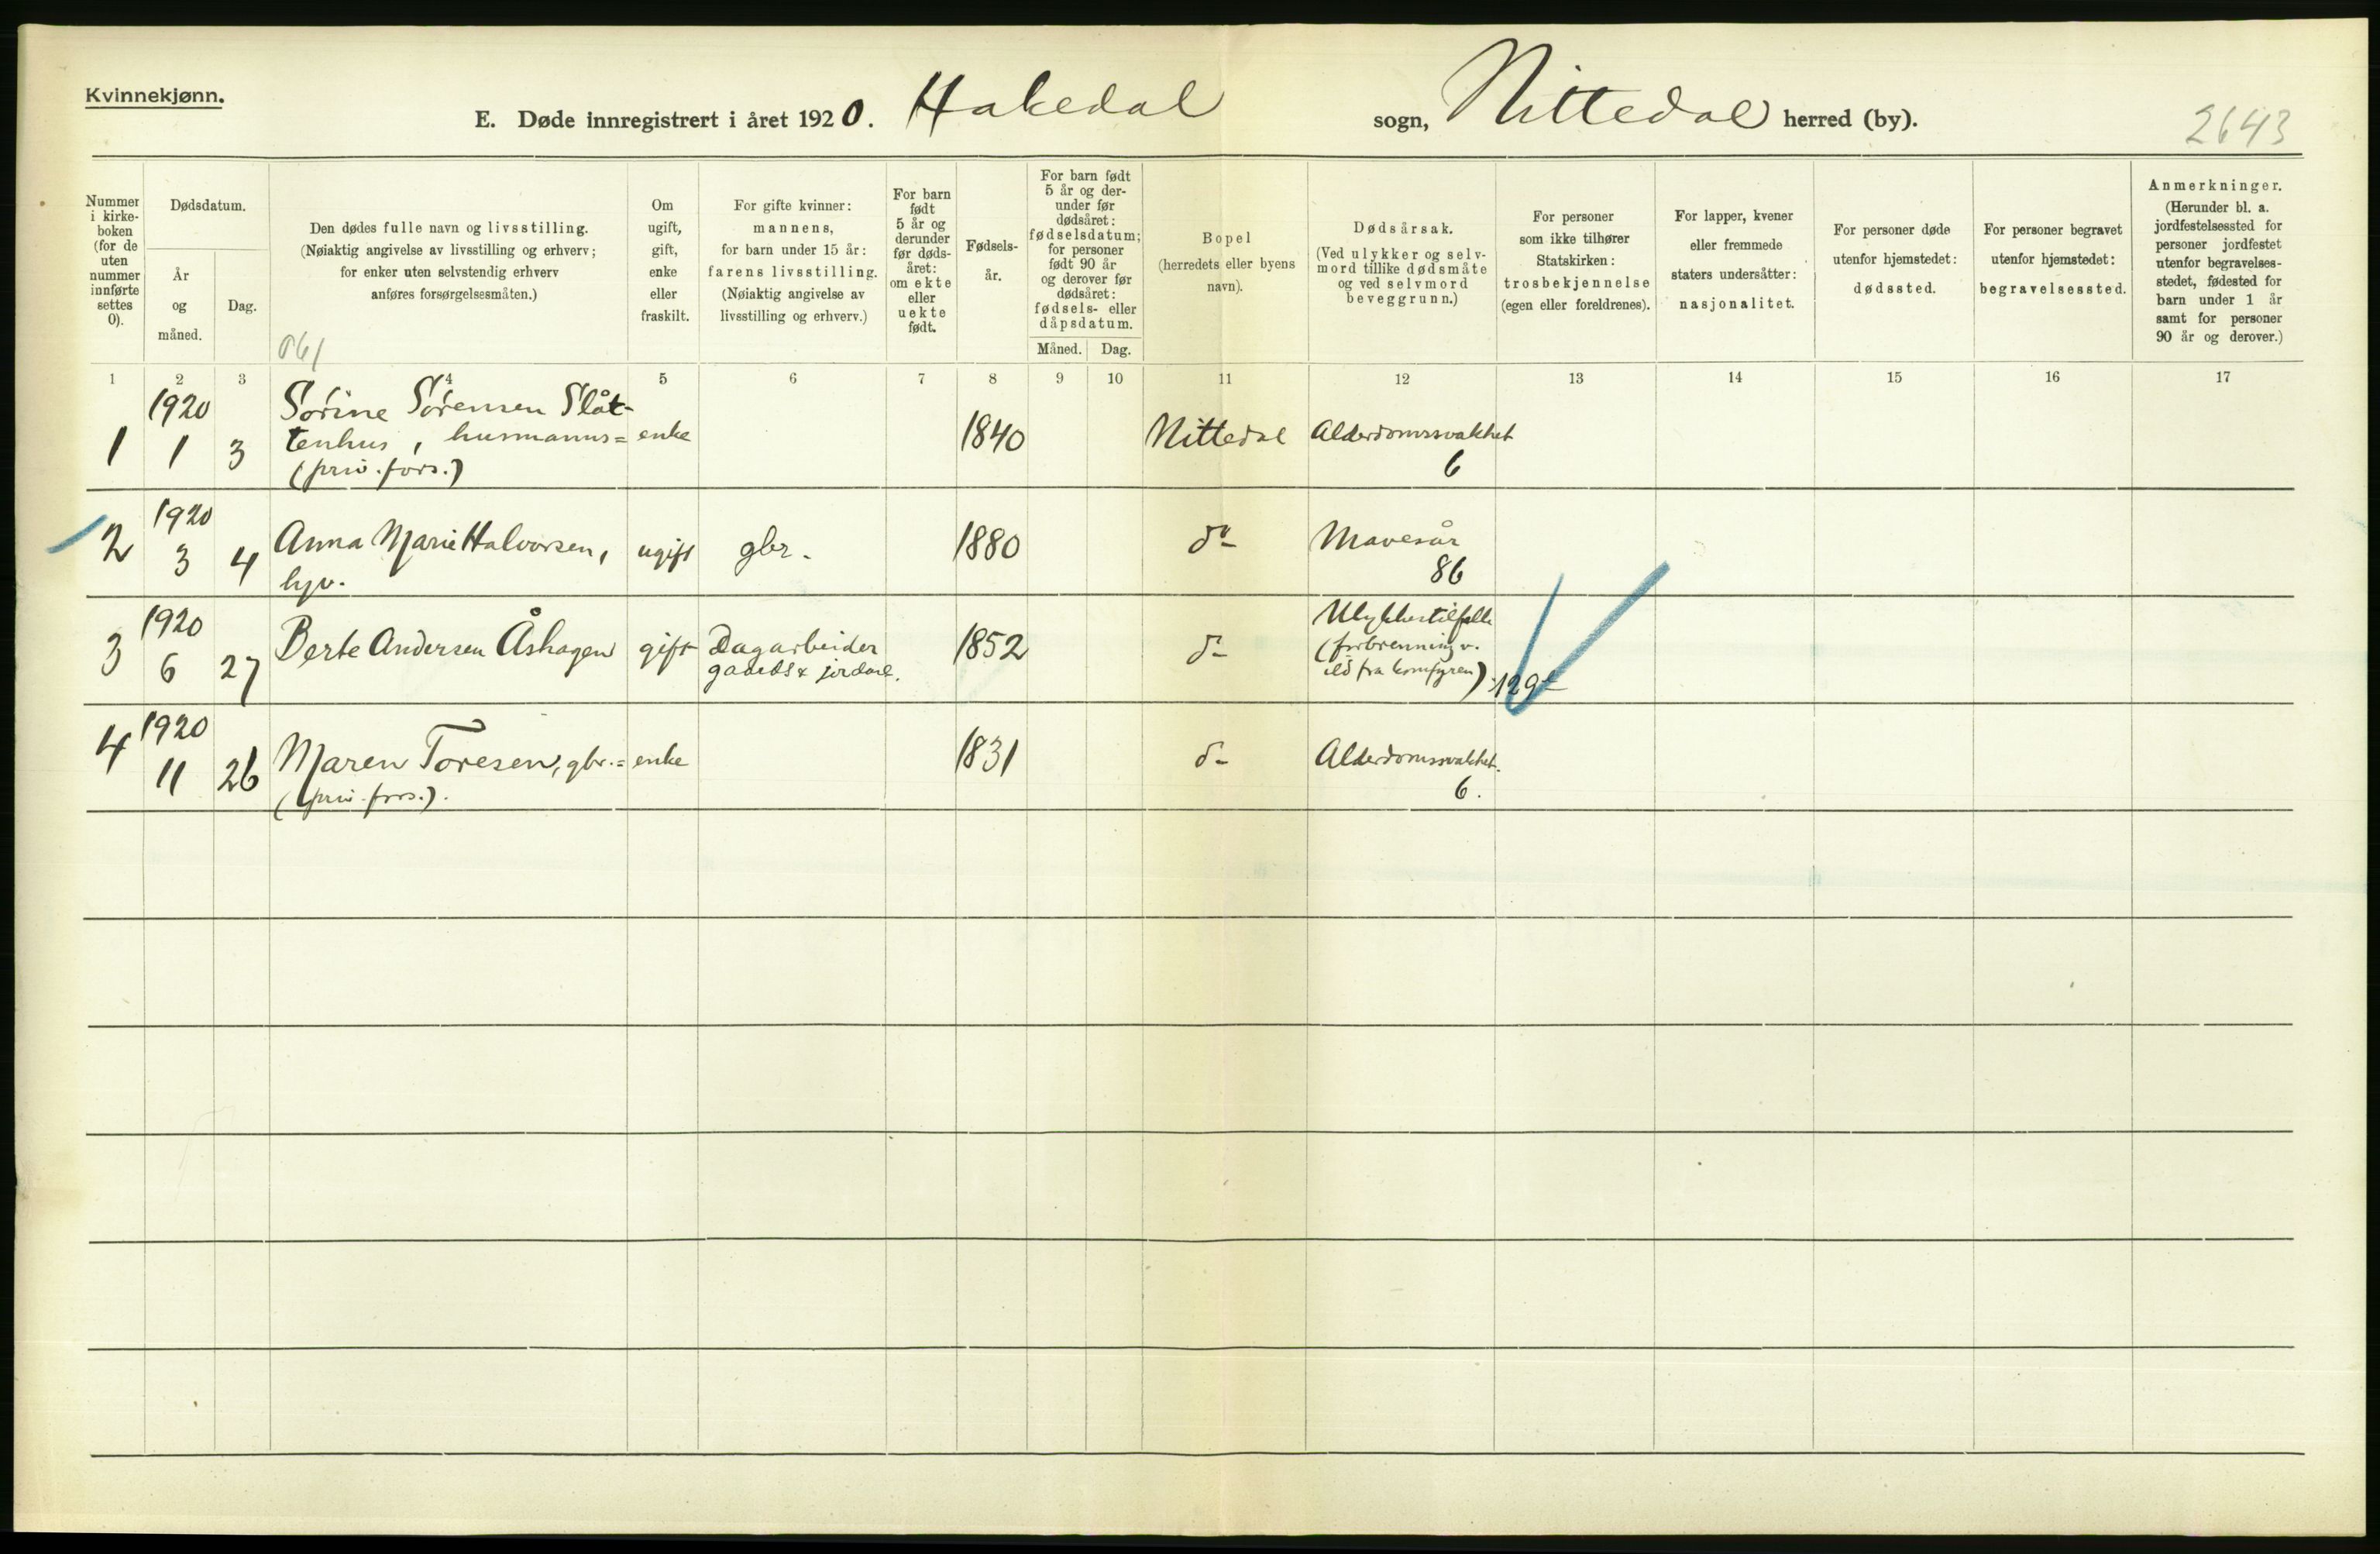 Kvinnekjønn.
E. Døde innregistrert i året 1920. Hakedal sogn, Nittedal herred (by).
2643
Nummer i kirke-boken (for de uten nummer innførte settes 0).
Dødsdatum.
År og måned.
Dag.
Den dødes fulle navn og livsstilling.
(Nøiaktig angivelse av livsstilling og erhverv;
for enker uten selvstendig erhverv
anføres forsørgelsesmåten.)
061
Om
ugift,
gift,
enke
eller
fraskilt.
For gifte kvinner:
mannens,
for barn under 15 år:
farens livsstilling.
(Nøiaktig angivelse av
livsstilling og erhverv.)
For barn
født
5 år og
derunder
før døds-
året:
om ekte
eller
uekte
født.
Fødsels-
år.
For barn født
5 år og der-
under før
dødsåret:
fødselsdatum;
for personer
født 90 år
og derover før
dødsåret:
fødsels- eller
dåpsdatum.
Måned. Dag.
Bopel
(herredets eller byens
navn).
Dødsårsak.
(Ved ulykker og selv-
mord tillike dødsmåte
og ved selvmord
beveggrunn.)
For personer
som ikke tilhører
Statskirken:
trosbekjennelse
(egen eller foreldrenes).
For lapper, kvener
eller fremmede
staters undersåtter:
nasjonalitet.
For personer døde
utenfor hjemstedet:
dødssted.
For personer begravet
utenfor hjemstedet:
begravelsessted.
Anmerkninger.
(Herunder bl. a.
jordfestelsessted for
personer jordfestet
utenfor begravelses-
stedet, fødested for
barn under 1 år
samt for personer
90 år og derover.)
1 2 3 4 5 6 7 8 9 10 11 12 13 14 15 16 17
1920
1 1 3
Sørine Sørensen Slåt-
tenhus, husmanns=
(priv. fors.)
enke
1840
Nittedal
Alderdomssvakhet
6
1920
2 3 4
Anna Marie Halvorsen,
hjv.
ugift
gbr.
1880
do
Mavesår
86
1920
3 6 27
Berte Andersen Åshagen
gift
Dagarbeider
gaards & jordarb.
1852
d-
Ulykkestilfelle
(forbrenning v.
ild fra komfyren)
129
1920
4 11 26
Maren Toresen, gbr.=
(priv. fors.).
enke
1831
d-
Alderdomssvakhet.
6.